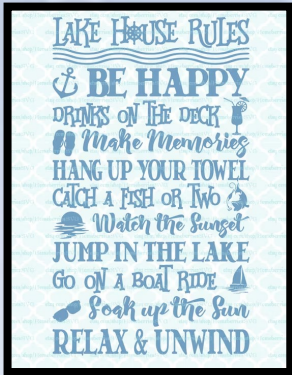 LAKE HOUSE RULES
BE HAPPY
DRINKS ON THE DECK
Make Memories
HANG UP YOUR TOWEL
CATCH A FISH OR TWO
Watch the Sunset
JUMP IN THE LAKE
GO ON A BOAT RIDE
Soak up the Sun
RELAX & UNWIND